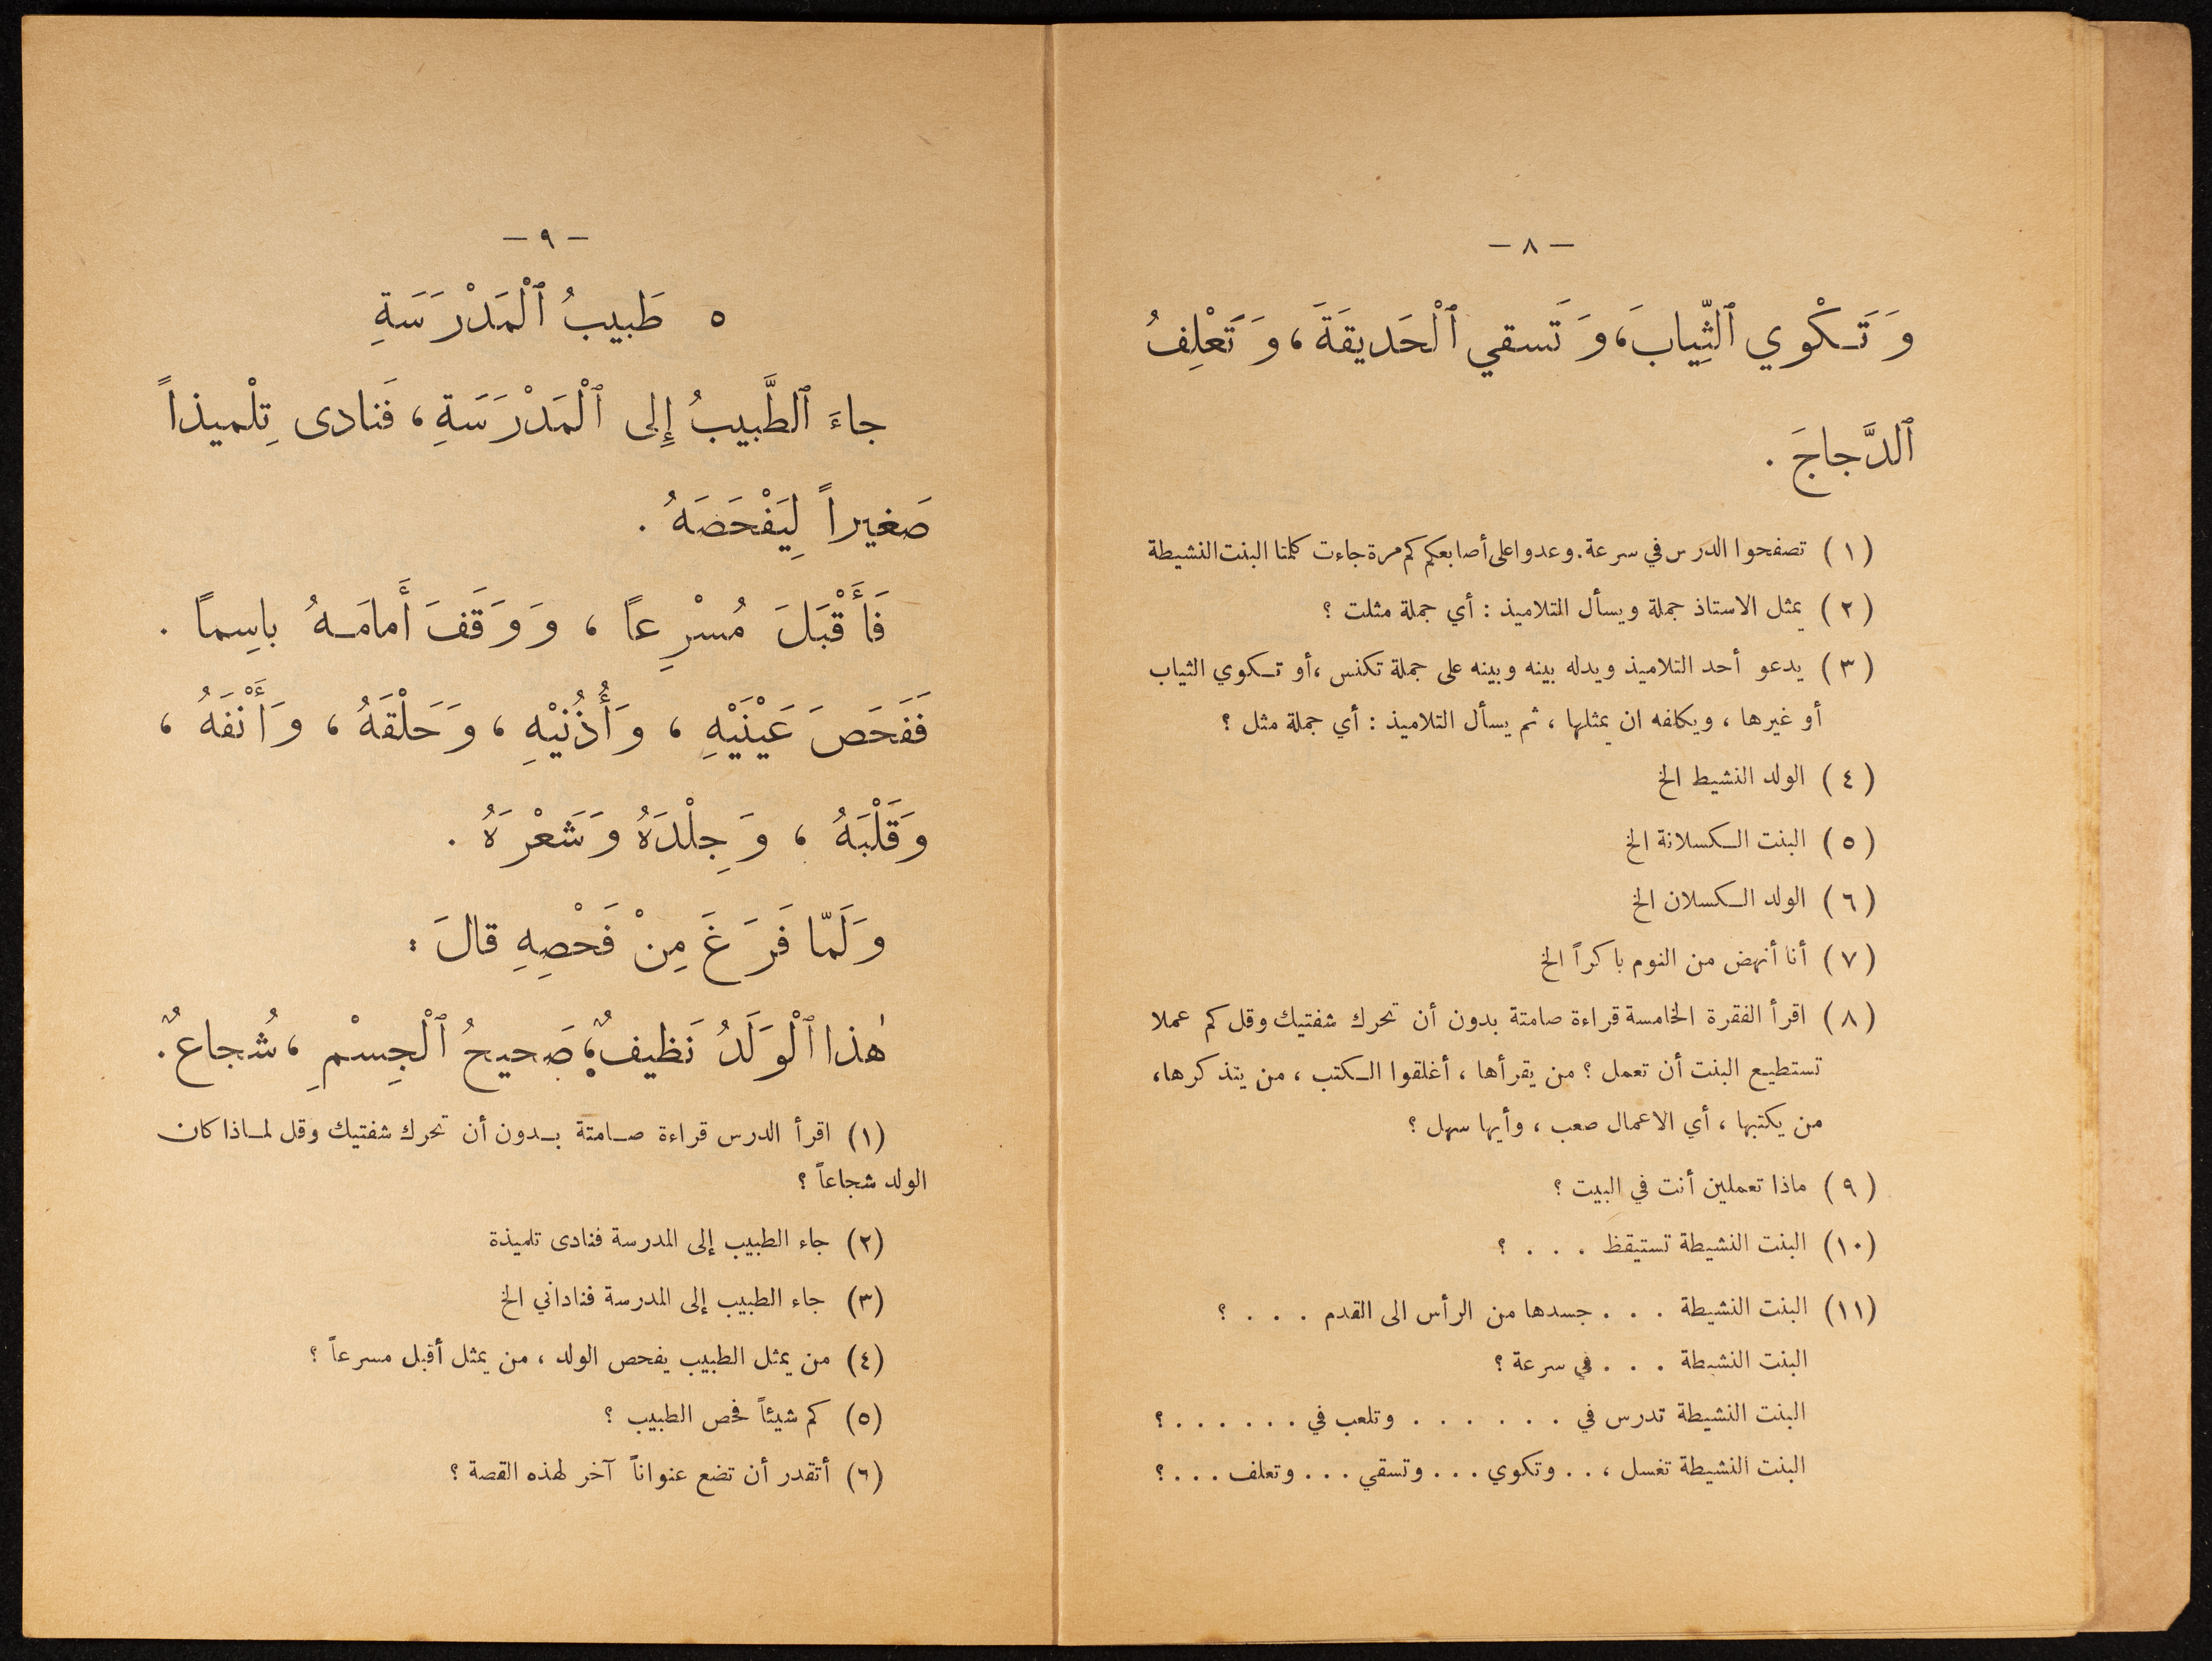 — ٨ —
وَتَـكْوي ٱلثِّيابَ، وَتَسقي ٱلْحَديقَةَ، وَتَعْلِفُ
ٱلدَّجاجَ .
(١) تصفحوا الدرس في سرعة. وعدوا على أصابعكم كم مرة جاءت كلمتا البنت النشيطة
(٢) يمثل الاستاذ جملة ويسأل التلاميذ : أي جملة مثلت ؟
(٣) يدعو أحد التلاميذ ويدله بينه وبينه على جملة تكنس ، أو تـكوي الثياب
أو غيرها ، ويكلفه ان يمثلها ، ثم يسأل التلاميذ : أي جملة مثل ؟
(٤) الولد النشيط الخ
(٥) البنت الـكسلانة الخ
(٦) الولد الـكسلان الخ
(٧) أنا أنهض من النوم باكراً الخ
(٨) اقرأ الفقرة الخامسة قراءة صامتة بدون أن تحرك شفتيك وقل كم عملا
تستطيع البنت أن تعمل ؟ من يقرأها ، أغلقوا الـكتب ، من يتذكرها،
من يكتبها ، أي الاعمال صعب ، وأيها سهل ؟
(٩) ماذا تعملين أنت في البيت ؟
(١٠) البنت النشيطة تستيقظ . . . ؟
(١١) البنت النشيطة . . . جسدها من الرأس الى القدم . . . ؟
البنت النشيطة . . . في سرعة ؟
البنت النشيطة تدرس في . . . . . . وتلعب في . . . . . . ؟
البنت النشيطة تغسل ، . . وتكوي . . . وتسقي . . . وتعلف . . . ؟
— ٩ —
٥ طَبيبُ ٱلْمَدْرَسَةِ
جاءَ ٱلطَّبيبُ إِلى ٱلْمَدْرَسَةِ ، فَنادى تِلْميذاً
صَغيراً لِيَفْحَصَهُ .
فَأَقْبَلَ مُسْرِعاً ، وَوَقَفَ أَمامَـهُ باسِماً .
فَفَحَصَ عَيْنَيْهِ ، وَأُذُنَيْهِ ، وَحَلْقَهُ ، وَأَنْفَهُ ،
وَقَلْبَهُ ، وَجِلْدَهُ وَشَعْرَهُ .
وَلَمّا فَرَغَ مِنْ فَحْصِهِ قالَ :
هٰذا ٱلْوَلَدُ نَظيفٌ، صَحيحُ ٱلْجِسْمِ ، شُجاعٌ.
(١) اقرأ الدرس قراءة صـامتة بـدون أن تحرك شفتيك وقل لمـاذا كان
الولد شجاعاً ؟
(٢) جاء الطبيب إلى المدرسة فنادى تلميذة
(٣) جاء الطبيب إلى المدرسة فناداني الخ
(٤) من يمثل الطبيب يفحص الولد ، من يمثل أقبل مسرعاً ؟
(٥) كم شيئاً فحص الطبيب ؟
(٦) أتقدر أن تضع عنواناً آخر لهذه القصة ؟